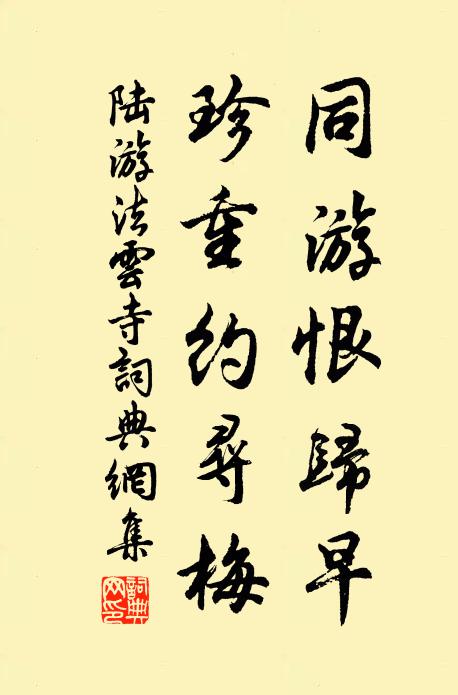 同游恨歸早
珍重約尋梅
陸游法雲寺詞典網集
詞典網印